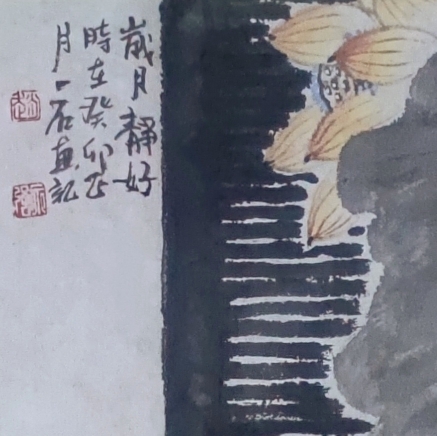 歲月靜好
時在癸卯正
月一石畫記